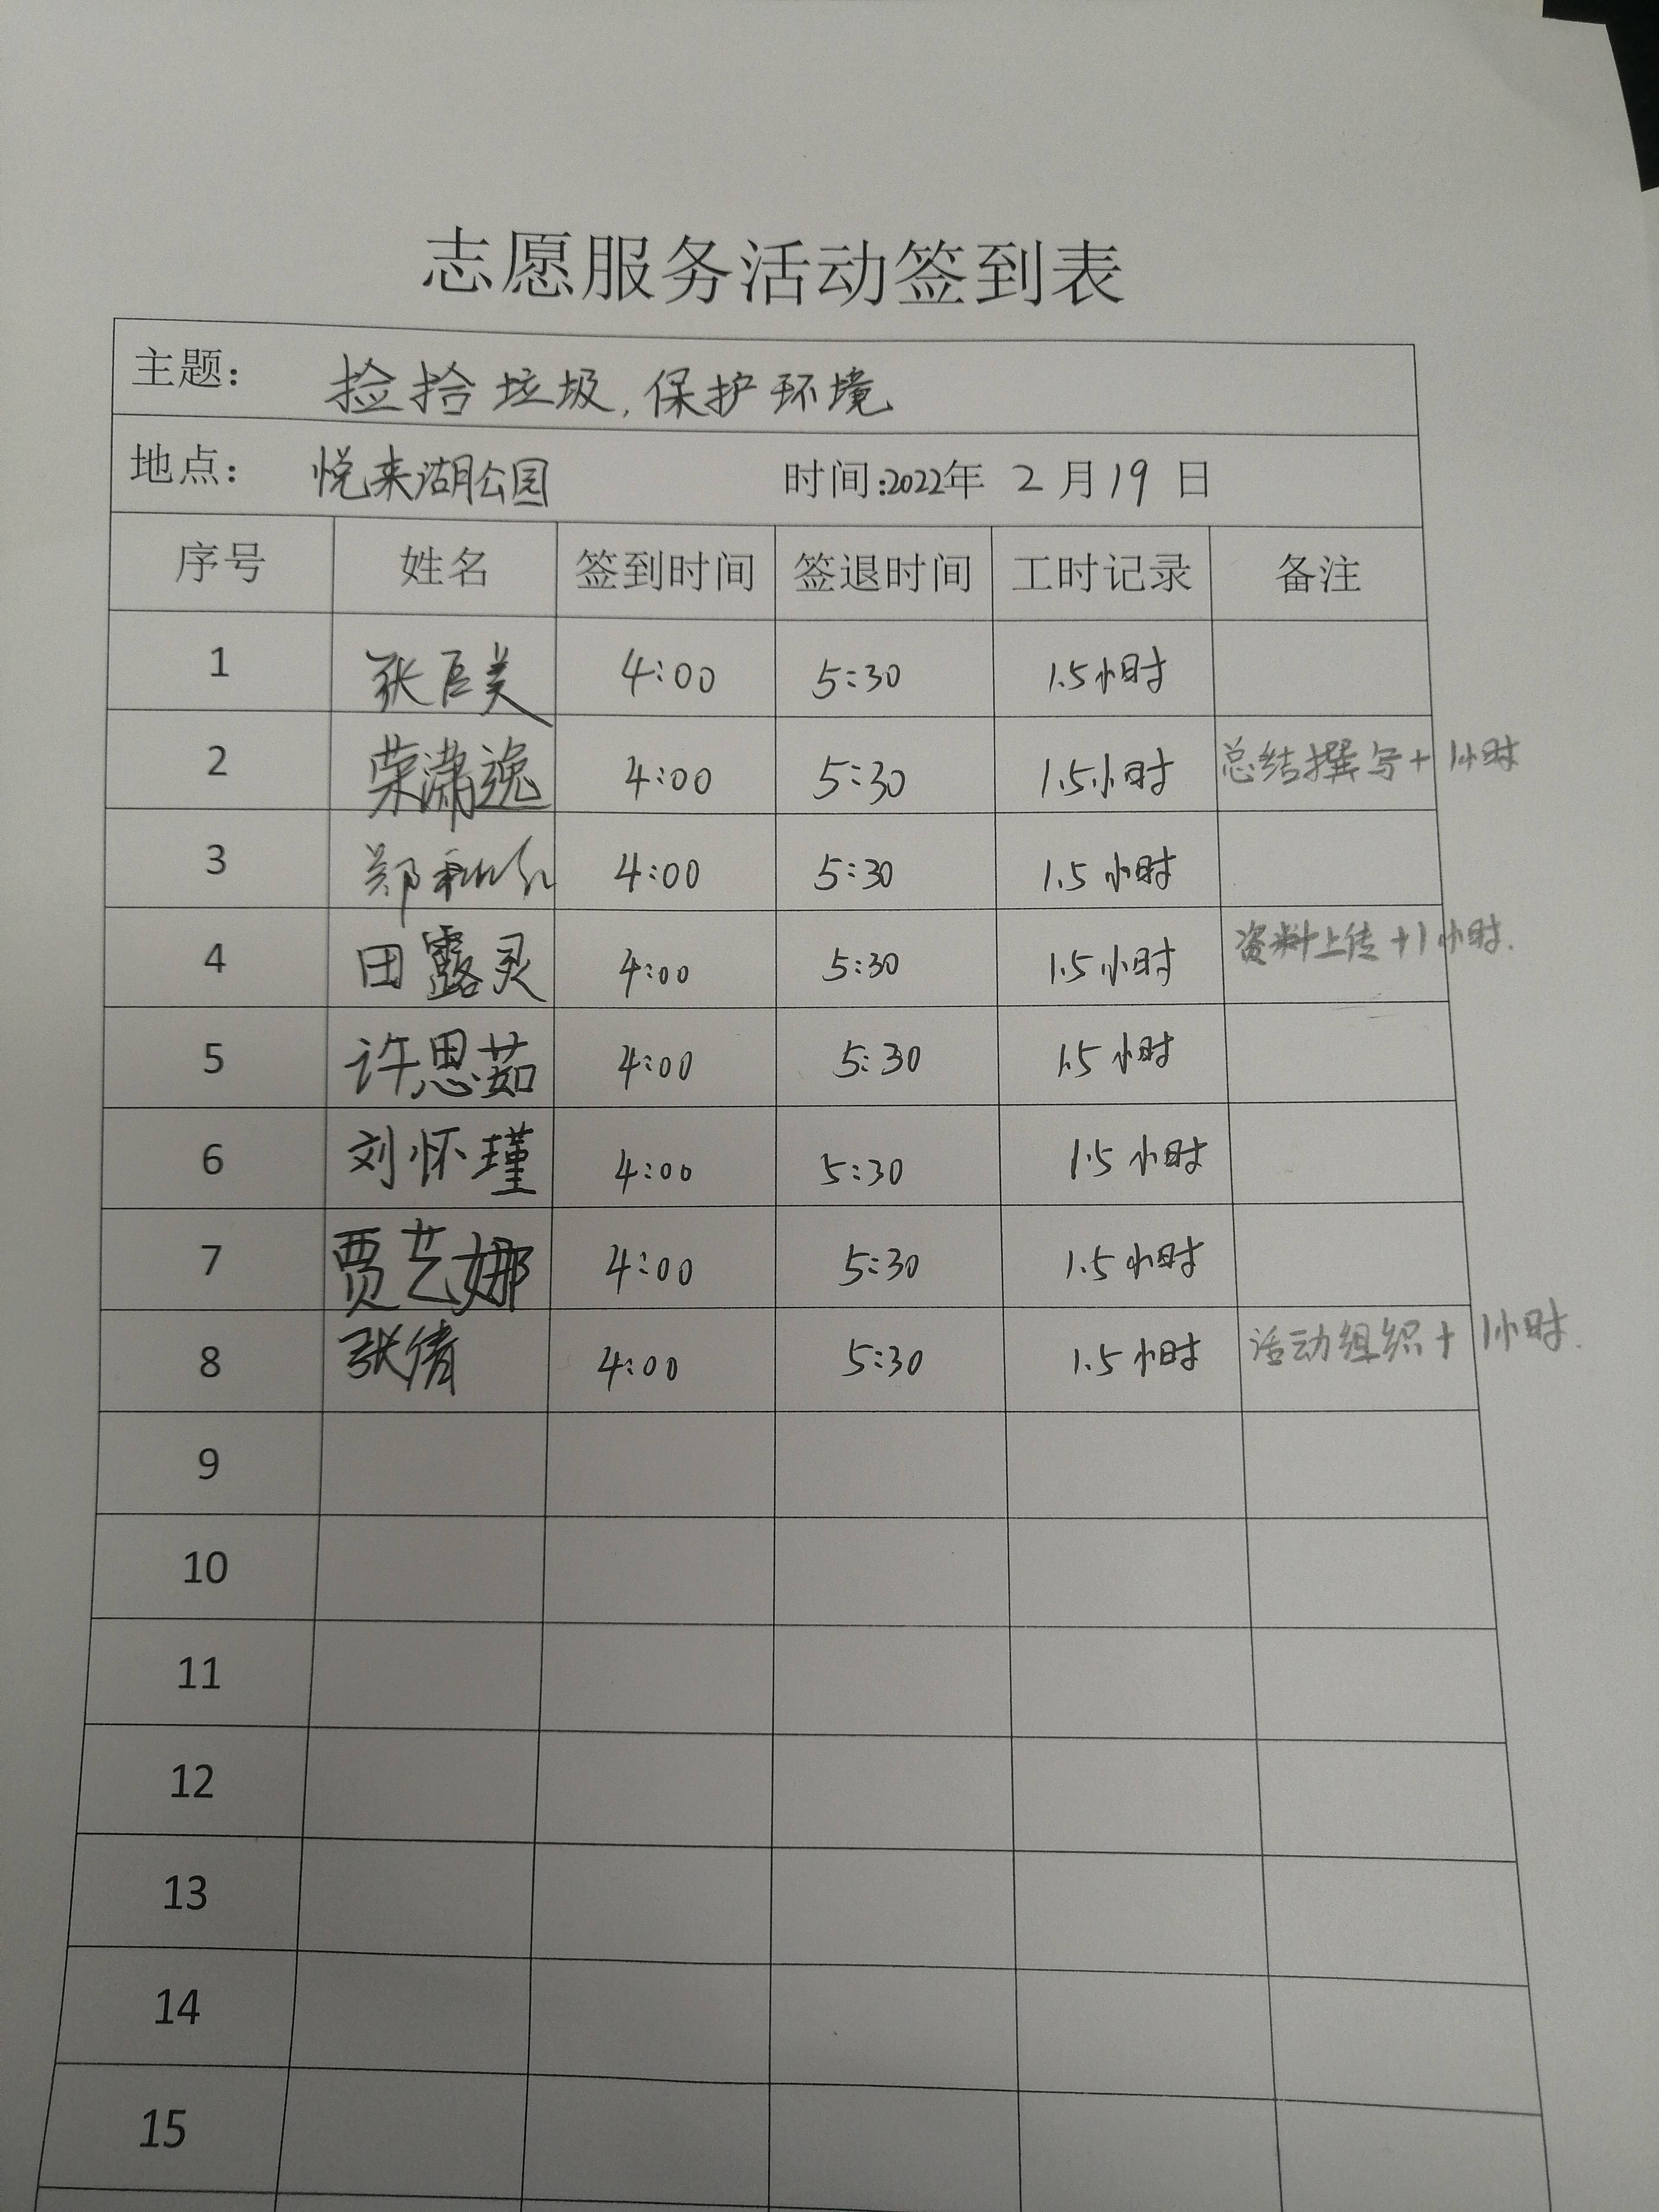 志愿服务活动签到表
主题： 捡拾垃圾，保护环境
地点： 悦来湖公园 时间:2022年 2月19日
序号 姓名 签到时间 签退时间 工时记录 备注
1 张巨美 4:00 5:30 1.5小时
2 荣潇逸 4:00 5:30 1.5小时 总结撰写+1小时
3 郑 4:00 5:30 1.5小时
4 田露灵 4:00 5:30 1.5小时 资料上传+1小时.
5 许思茹 4:00 5:30 1.5小时
6 刘怀瑾 4:00 5:30 1.5小时
7 贾艺娜 4:00 5:30 1.5小时
8 张倩 4:00 5:30 1.5小时 活动组织+1小时.
9
10
11
12
13
14
15